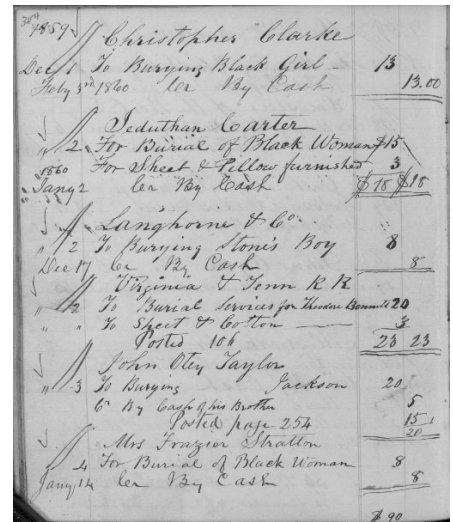 1859
Christopher Clarke
Dec 1 To Burying Black Girl — 13
Feby 3rd 1860 Cr By Cash 13.00
Jeduthan Carter
" 2 For Burial of Black Woman $15
For Sheet & Pillow furnished 3
1860
Jany 2 Cr By Cash $18 $18
Langhorne & Co
" 2 To Burying Stone's Boy 8
Dec 17 Cr By Cash 8
Virginia & Tenn R R
" 2 To Burial Services for Theodore 20
" " To Sheet & Cotton — 3
Posted 106 23 23
John Otey Taylor
" 3 To Burying Jackson 20
By Cash of his Brother 5
Posted page 254 15
20
Mrs Frazier Stratton
" 4 For Burial of Black Woman 8
Jany 14 Cr By Cash 8
$ 90